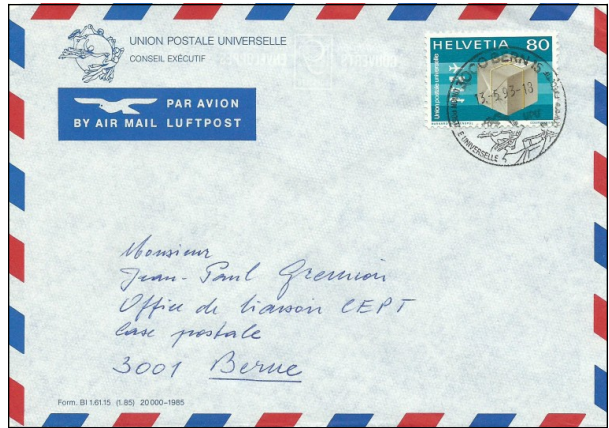 UNION POSTALE UNIVERSELLE
CONSEIL EXÉCUTIF
PAR AVION
BY AIR MAIL LUFTPOST
HELVETIA 80
Union postale universelle
3000 BERN 15
13.-5.93-18
E UNIVERSELLE
Monsieur
Jean-Paul Gremion
Office de liaison CEPT
Case postale
3001 Berne
Form. BI 1.61.15 (1.85) 20 000–1985